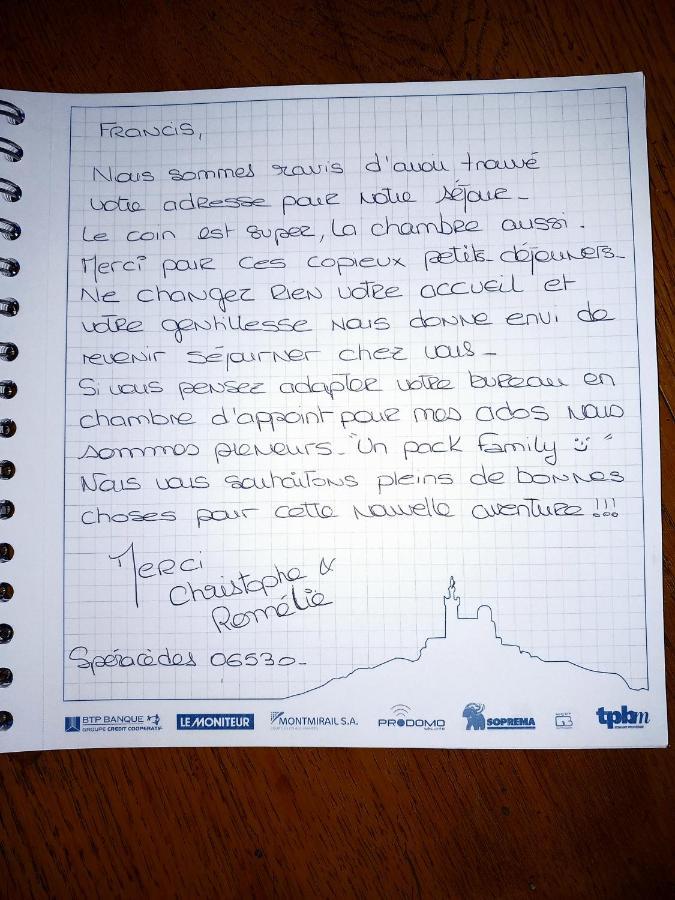 Francis,
Nous sommes ravis d'avoir trouvé
votre adresse pour notre séjour_
Le coin est super, la chambre aussi.
Merci pour ces copieux petits-déjeuners_
Ne changez rien votre accueil et
votre gentillesse nous donne envi de
revenir séjourner chez vous_
Si vous pensez adapter votre bureau en
chambre d'appoint pour mes ados nous
sommes preneurs_ "Un pack family ☺"
Nous vous souhaitons pleins de bonnes
choses pour cette nouvelle aventure !!!
Merci
Christophe &
Romélie
Spéracèdes 06530_
BTP BANQUE
GROUPE CREDIT COOPERATIF
LE MONITEUR
MONTMIRAIL S.A.
PRODOMO
SÉCURITÉ
SOPREMA
tpbm